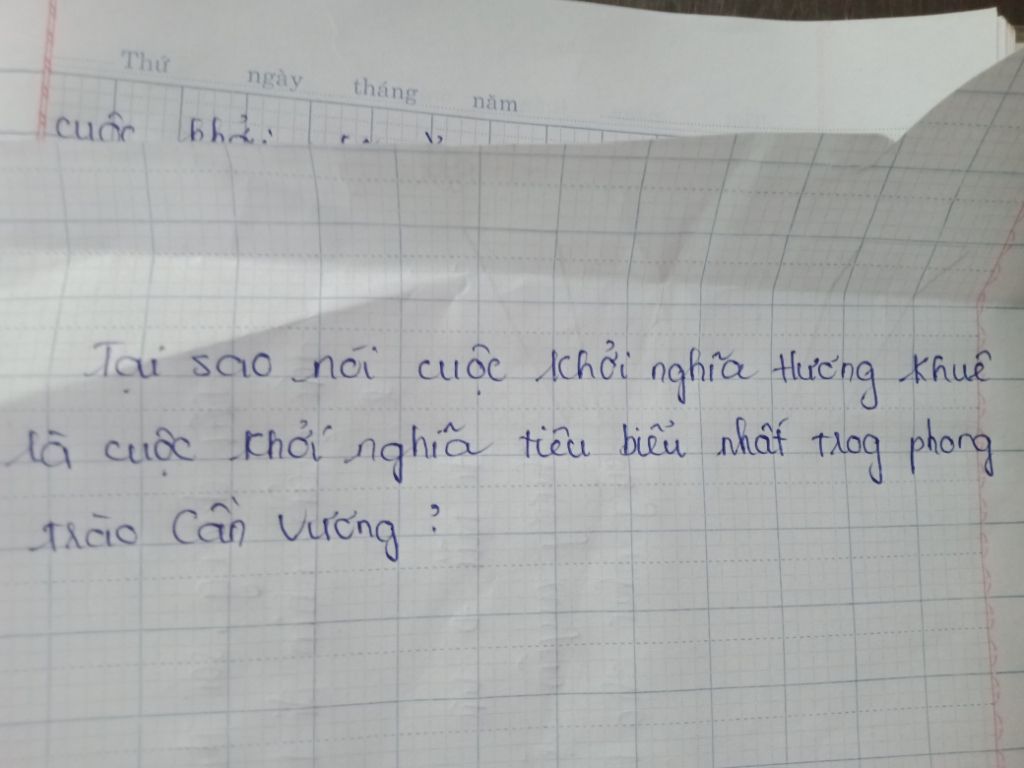 Thứ ngày tháng năm
cuộc
Tại sao nói cuộc khởi nghĩa Hương Khuê
là cuộc khởi nghĩa tiêu biểu nhất trog phong
trào Cần Vương ?